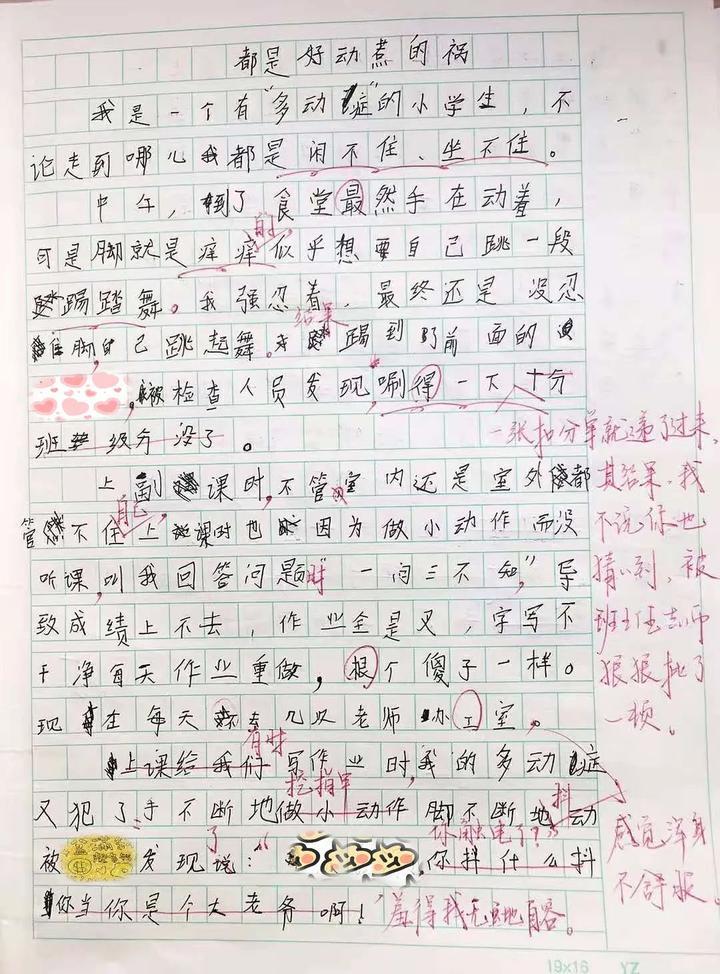 都是好动惹的祸
我是一个有“多动症”的小学生，不
论走到哪儿我都是闲不住、坐不住。
中午，到了食堂最然手在动着，
可是脚就是痒痒似乎想要自己跳一段
自
踢踏舞。我强忍着，最终还是没忍
结果
住脚自己跳起舞。踢到了前面的
被检查人员发现，唰得一下十分
班级分没了。
一张扣分单就递了过来，
上副课时，不管室内还是室外都
其结果，我
自己
管不住上课时也因为做小动作而没
不说你也
听课，叫我回答问题时“一问三不知”，导
猜得到，被
致成绩上不去，作业全是叉，字写不
班主任老师
干净每天作业重做，根个傻子一样。
狠狠批了
现在每天几以老师办工室。
一顿。
有时
上课给我们写作业时，我的多动症
挖指甲
抖
又犯了手不断地做小动作脚不断地动
感觉浑身
不舒服。
了
你触电了？
被发现说：“你抖什么抖
你当你是个大老爷啊！
羞得我无地自容。
19×16 YZ